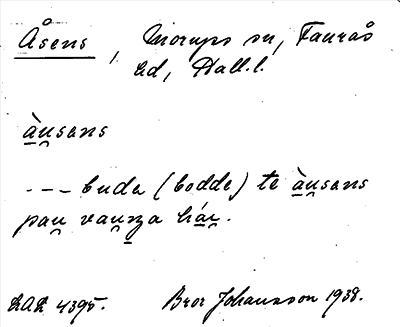 Åsens, Morups sn, Faurås
hd, Hall.l.
àu̯sens
--- buda (bodde) te àu̯sens
pau̯ vau̯n̠a há̠u̯.
LAL 4395. Bror Johansson 1938.